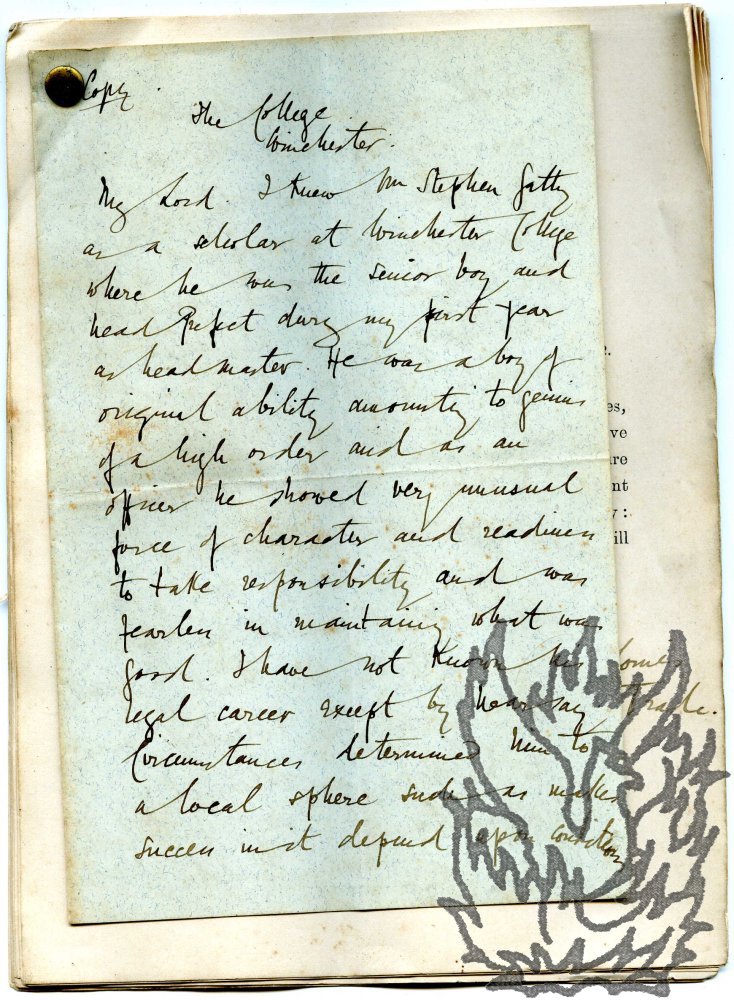 Copy
The College
Winchester.
My Lord. I knew Mr Stephen Gatty
as a scholar at Winchester College
where he was the senior boy and
head Prefect during my first year
as headmaster. He was a boy of
original ability amounting to genius
of a high order and as an
officer he showed very unusual
force of character and readiness
to take responsibility and was
fearless in maintaining what was
good. I have not known his
legal career except by hear say
Circumstances determined him to
a local sphere such as makes
success in it depend upon
e.
es,
ve
are
nt
y:
ill